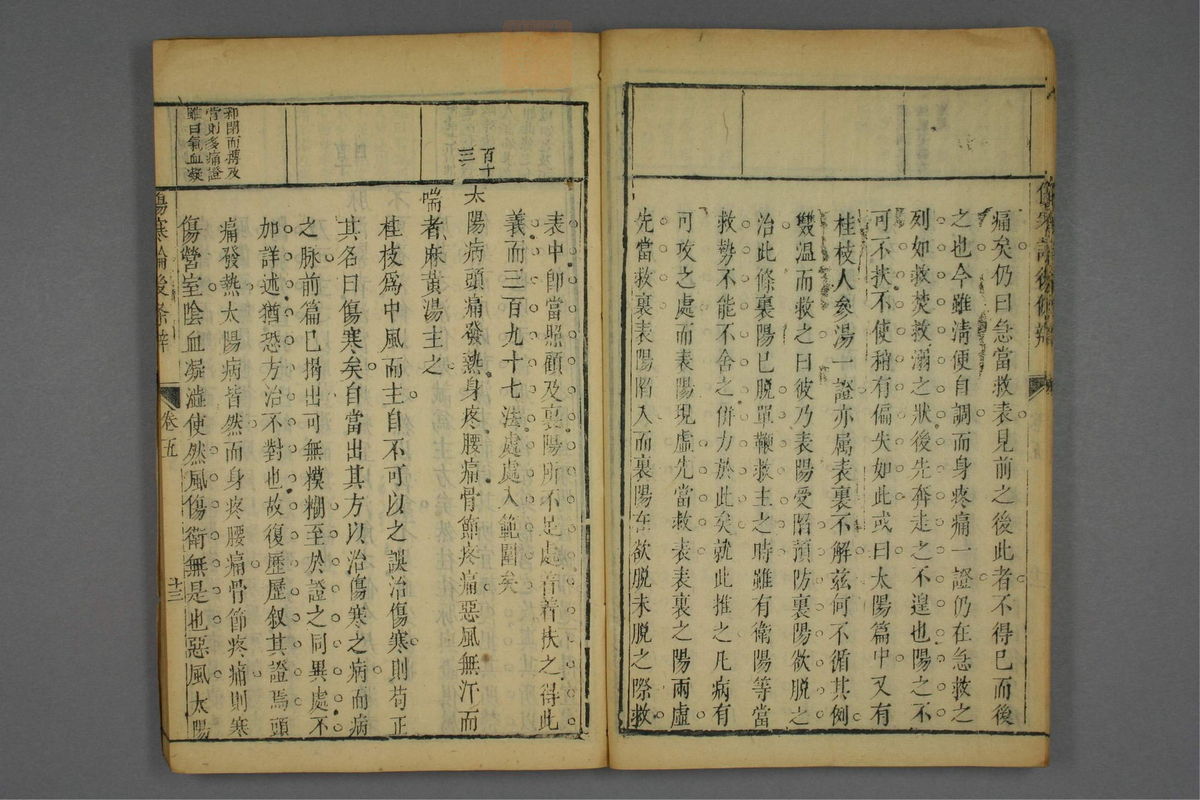 痛矣仍曰急當救表見前之後此者不得已而後
之也今雖清便自調而身疼痛一證仍在急救之
列如救焚救溺之狀後先奔走之不遑也陽之不
可不扶不使稍有偏失如此或曰太陽篇中又有
桂枝人參湯一證亦属表裏不解兹何不循其例
雙溫而救之曰彼乃表陽受陷預防裏陽欲脫之
治此條裏陽已脫單鞭救主之時雖有衛陽等當
救勢不能不舍之併力於此矣就此推之凡病有
可攻之處而表陽現虛先當救表表裏之陽兩虛
先當救裏表陽陷入而裏陽在欲脫未脫之際救
表中卽當照顧及裏陽所不足處着着扶之得此
義而三百九十七法處處入範圍矣
百十三
太陽病頭痛發熱身疼腰痛骨節疼痛惡風無汗而
喘者麻黃湯主之
桂枝爲中風而主自不可以之誤治傷寒則苟正
其名曰傷寒矣自當出其方以治傷寒之病而病
之脉前篇已揭出可無模糊至於證之同異處不
加詳述猶恐方治不對也故復歷歷叙其證焉頭
痛發熱太陽病皆然而身疼腰痛骨節疼痛則寒
傷營室陰血凝澁使然風傷衛無是也惡風太陽
邪閉而薄及
營則多痛證
雖曰氣血凝
傷寒論後條辨
卷五
十三